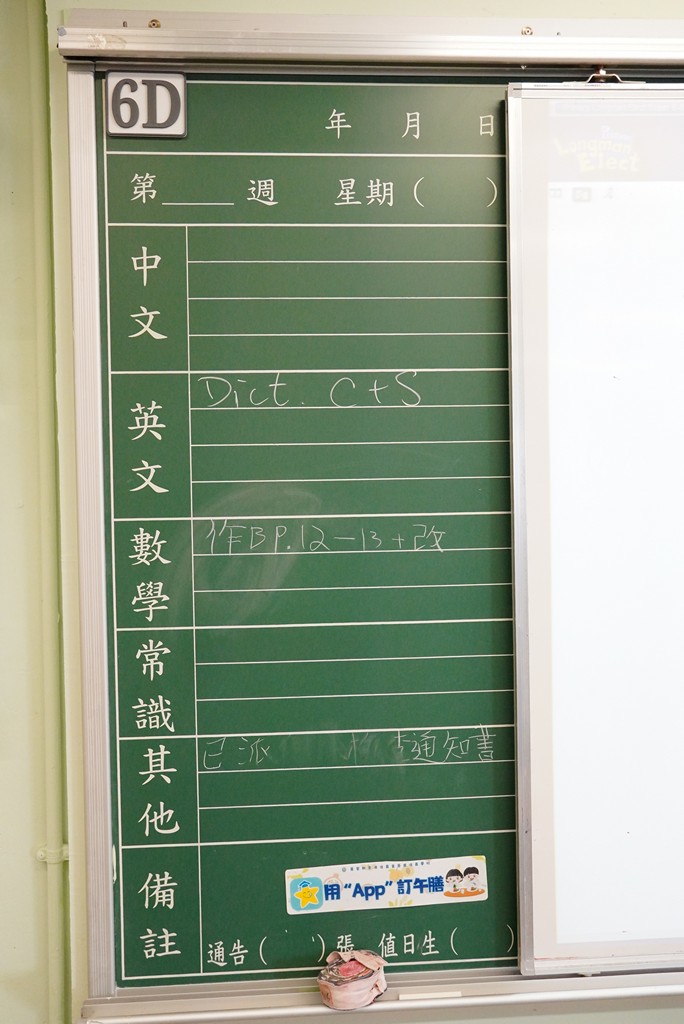 6D
年 月 日
第____週 星期( )
中文
英文
Dict. C+S
數學
作BP.12-13+改
常識
其他
已派 通知書
備註
用“App”訂午膳
通告( )張 值日生( )